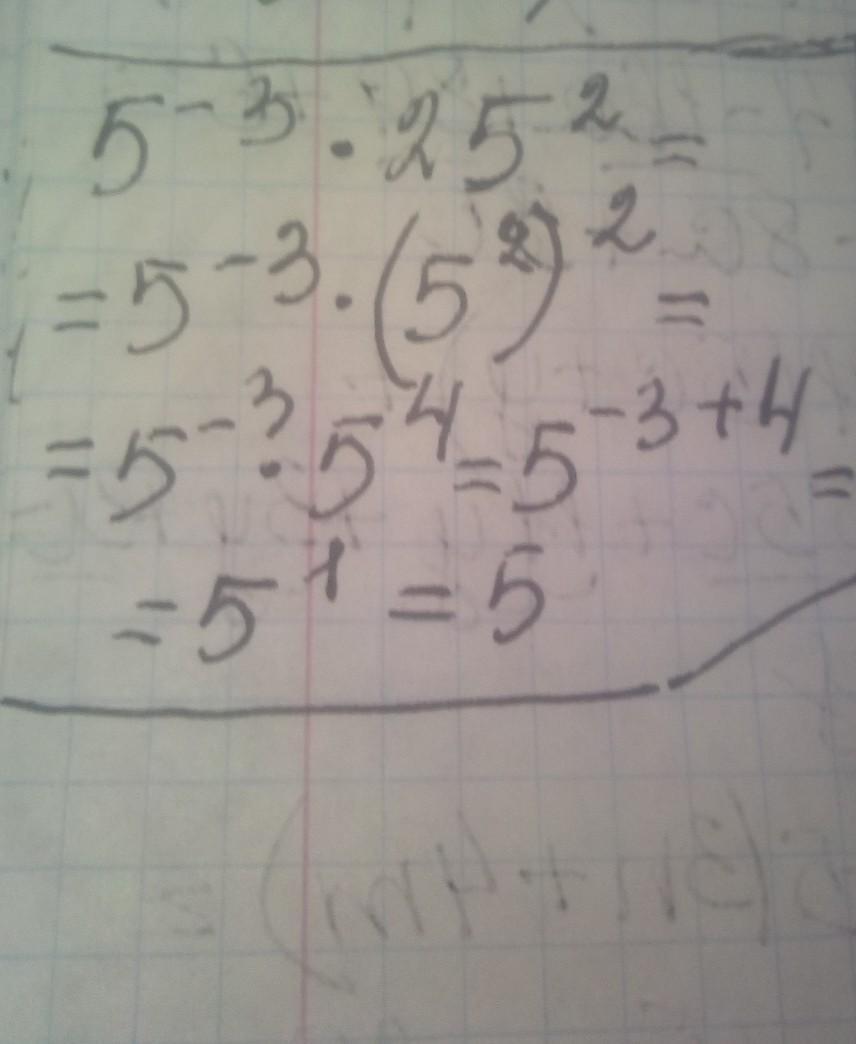 5⁻³ · 25² =
= 5⁻³ · (5²)² =
= 5⁻³ · 5⁴ = 5⁻³⁺⁴ =
= 5¹ = 5